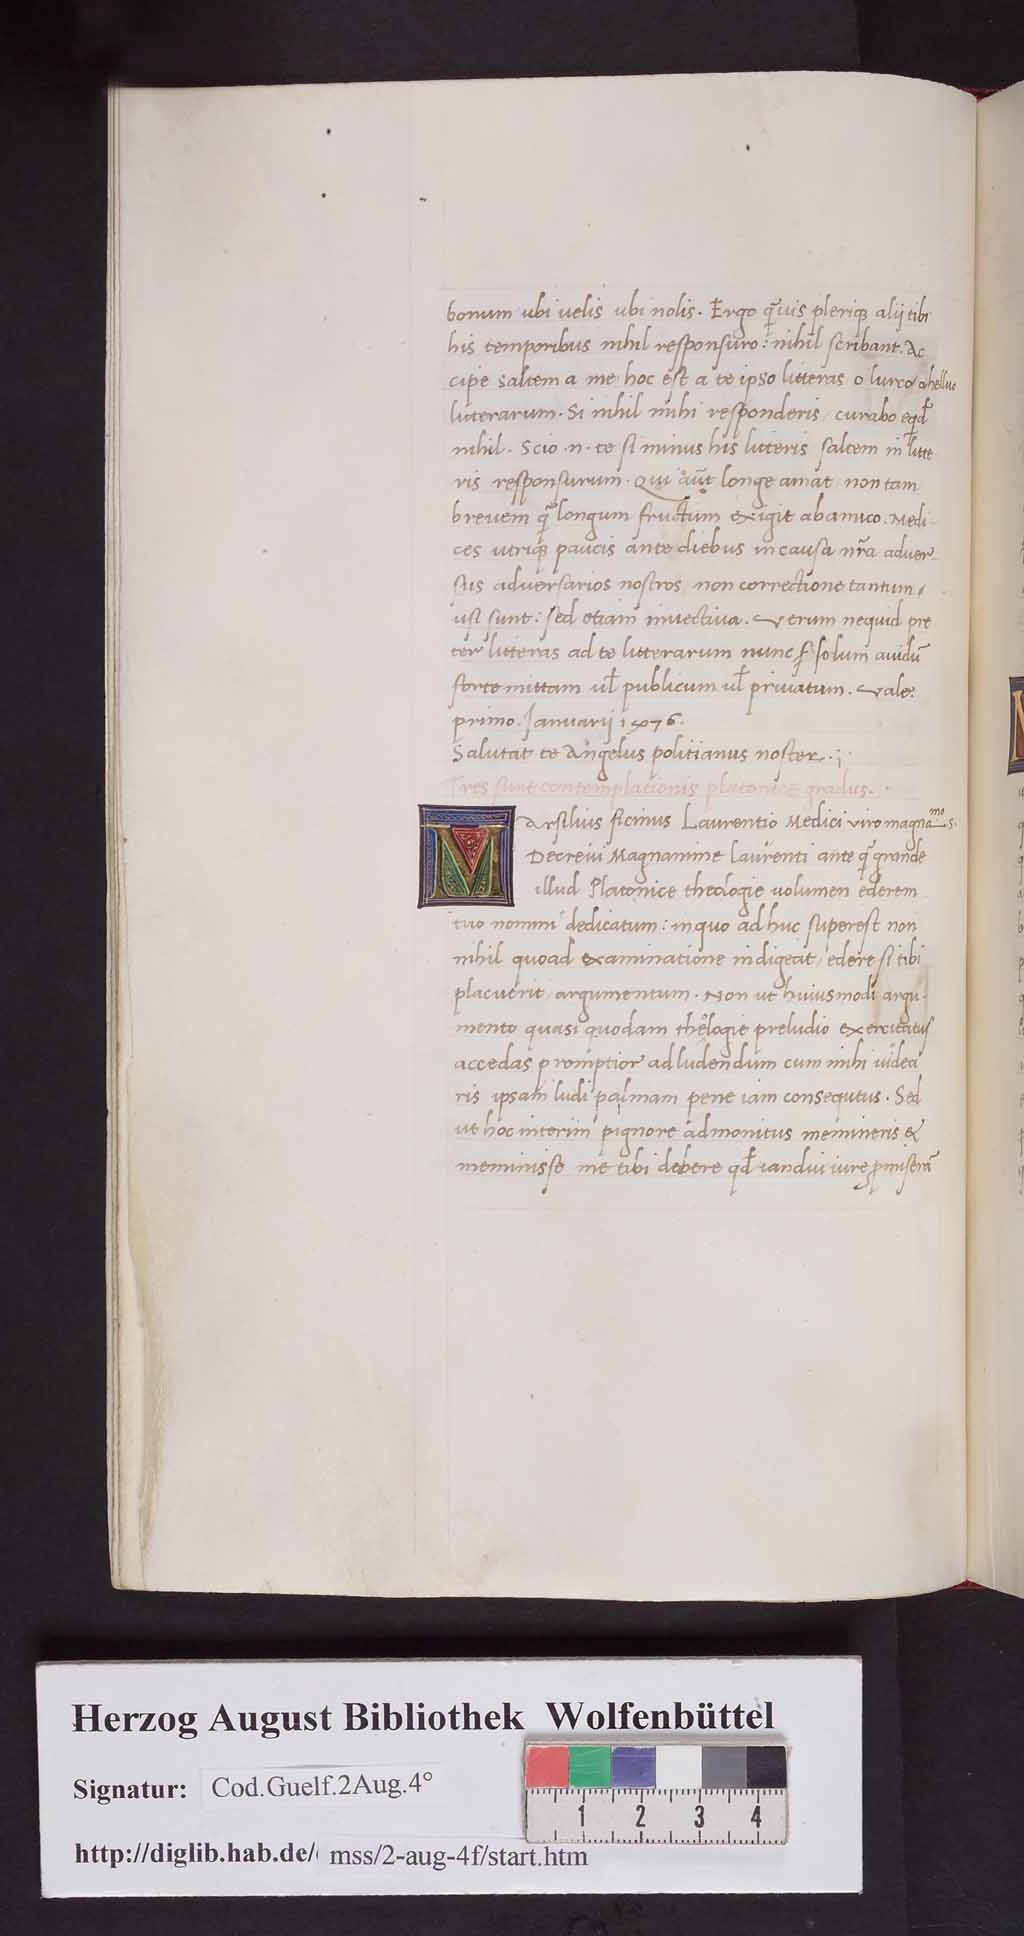 bonum ubi uelis ubi nolis. Ergo q̃uis pleriq; alij tibi
his temporibus nihil responsuro: nihil scribant. Ac
cipe saltem a me hoc est a te ipso litteras o lurco o helluo
litterarum. Si nihil mihi responderis / curabo eqd̃
nihil. Scio .n. te si minus his litteris saltem in litte
ris responsurum. Qui aũt longe amat non tam
breuem q̃ longum fructum exigit ab amico. Medi
ces utriq; paucis ante diebus in causa nr̃a aduer
sus aduersarios nostros non correctione tantum /
usi sunt: sed etiam inuectiua. Verum nequid pre
ter litteras ad te litterarum nunc solum auidũ
forte mittam ul̃ publicum ul̃ priuatum. Vale.
primo. Januarij 1476.
Salutat te Angelus politianus noster.
Tres sunt contemplationis platonice gradus.
Marsilius ficinus Laurentio Medici viro magnamo s.
Decreui Magnanime laurenti ante q̃ grande
illud Platonice theologie uolumen ederem
tuo nomini dedicatum: in quo ad huc superest non
nihil quoad examinatione indigeat / edere si tibi
placuerit / argumentum. Non ut huiusmodi argu
mento quasi quodam theologie preludio exercitatus
accedas promptior ad ludendum cum mihi uidea
ris ipsam ludi palmam pene iam consequtus. Sed
ut hoc interim pignore admonitus memineris &
meminisse me tibi debere qd̃ iandiu iure promiserã
Herzog August Bibliothek Wolfenbüttel
Signatur: Cod.Guelf.2Aug.4°
http://diglib.hab.de/ mss/2-aug-4f/start.htm
1 2 3 4